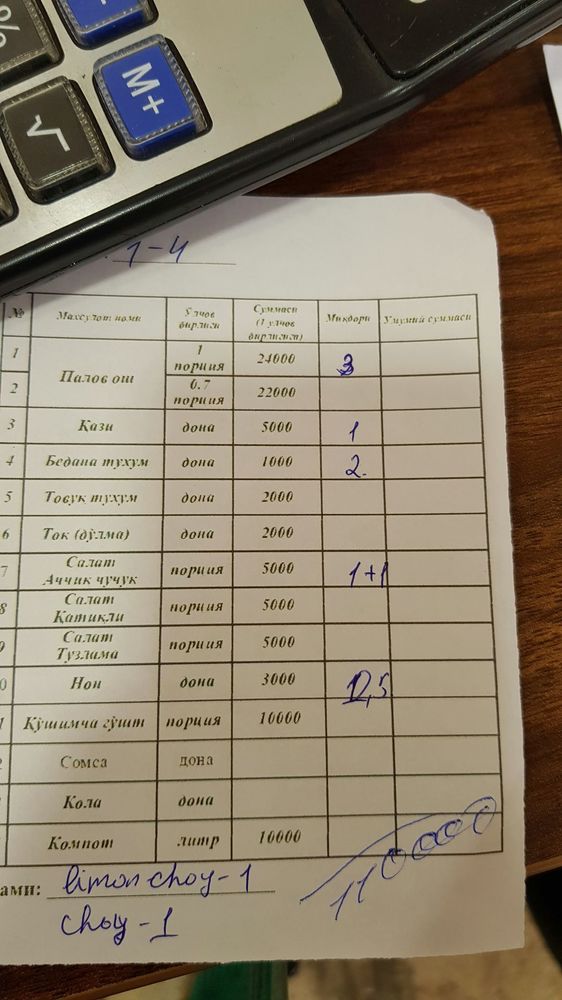 %
√
M+
1-4
№ Махсулот номи Ўлчов бирлиги Суммаси (1 улчов бирлигиги) Миқдори Умумий суммаси
1 Палов ош 1 порция 24000 3
2 0.7 порция 22000
3 Кази дона 5000 1
4 Бедана тухум дона 1000 2
5 Товук тухум дона 2000
6 Ток (дўлма) дона 2000
7 Салат Аччик чучук порция 5000 1+1
8 Салат Катикли порция 5000
9 Салат Тузлама порция 5000
0 Нон дона 3000
1 Қўшимча гўшт порция 10000
2 Сомса дона
Кола дона
Компот литр 10000
ами: limon choy-1
choy-1
110000